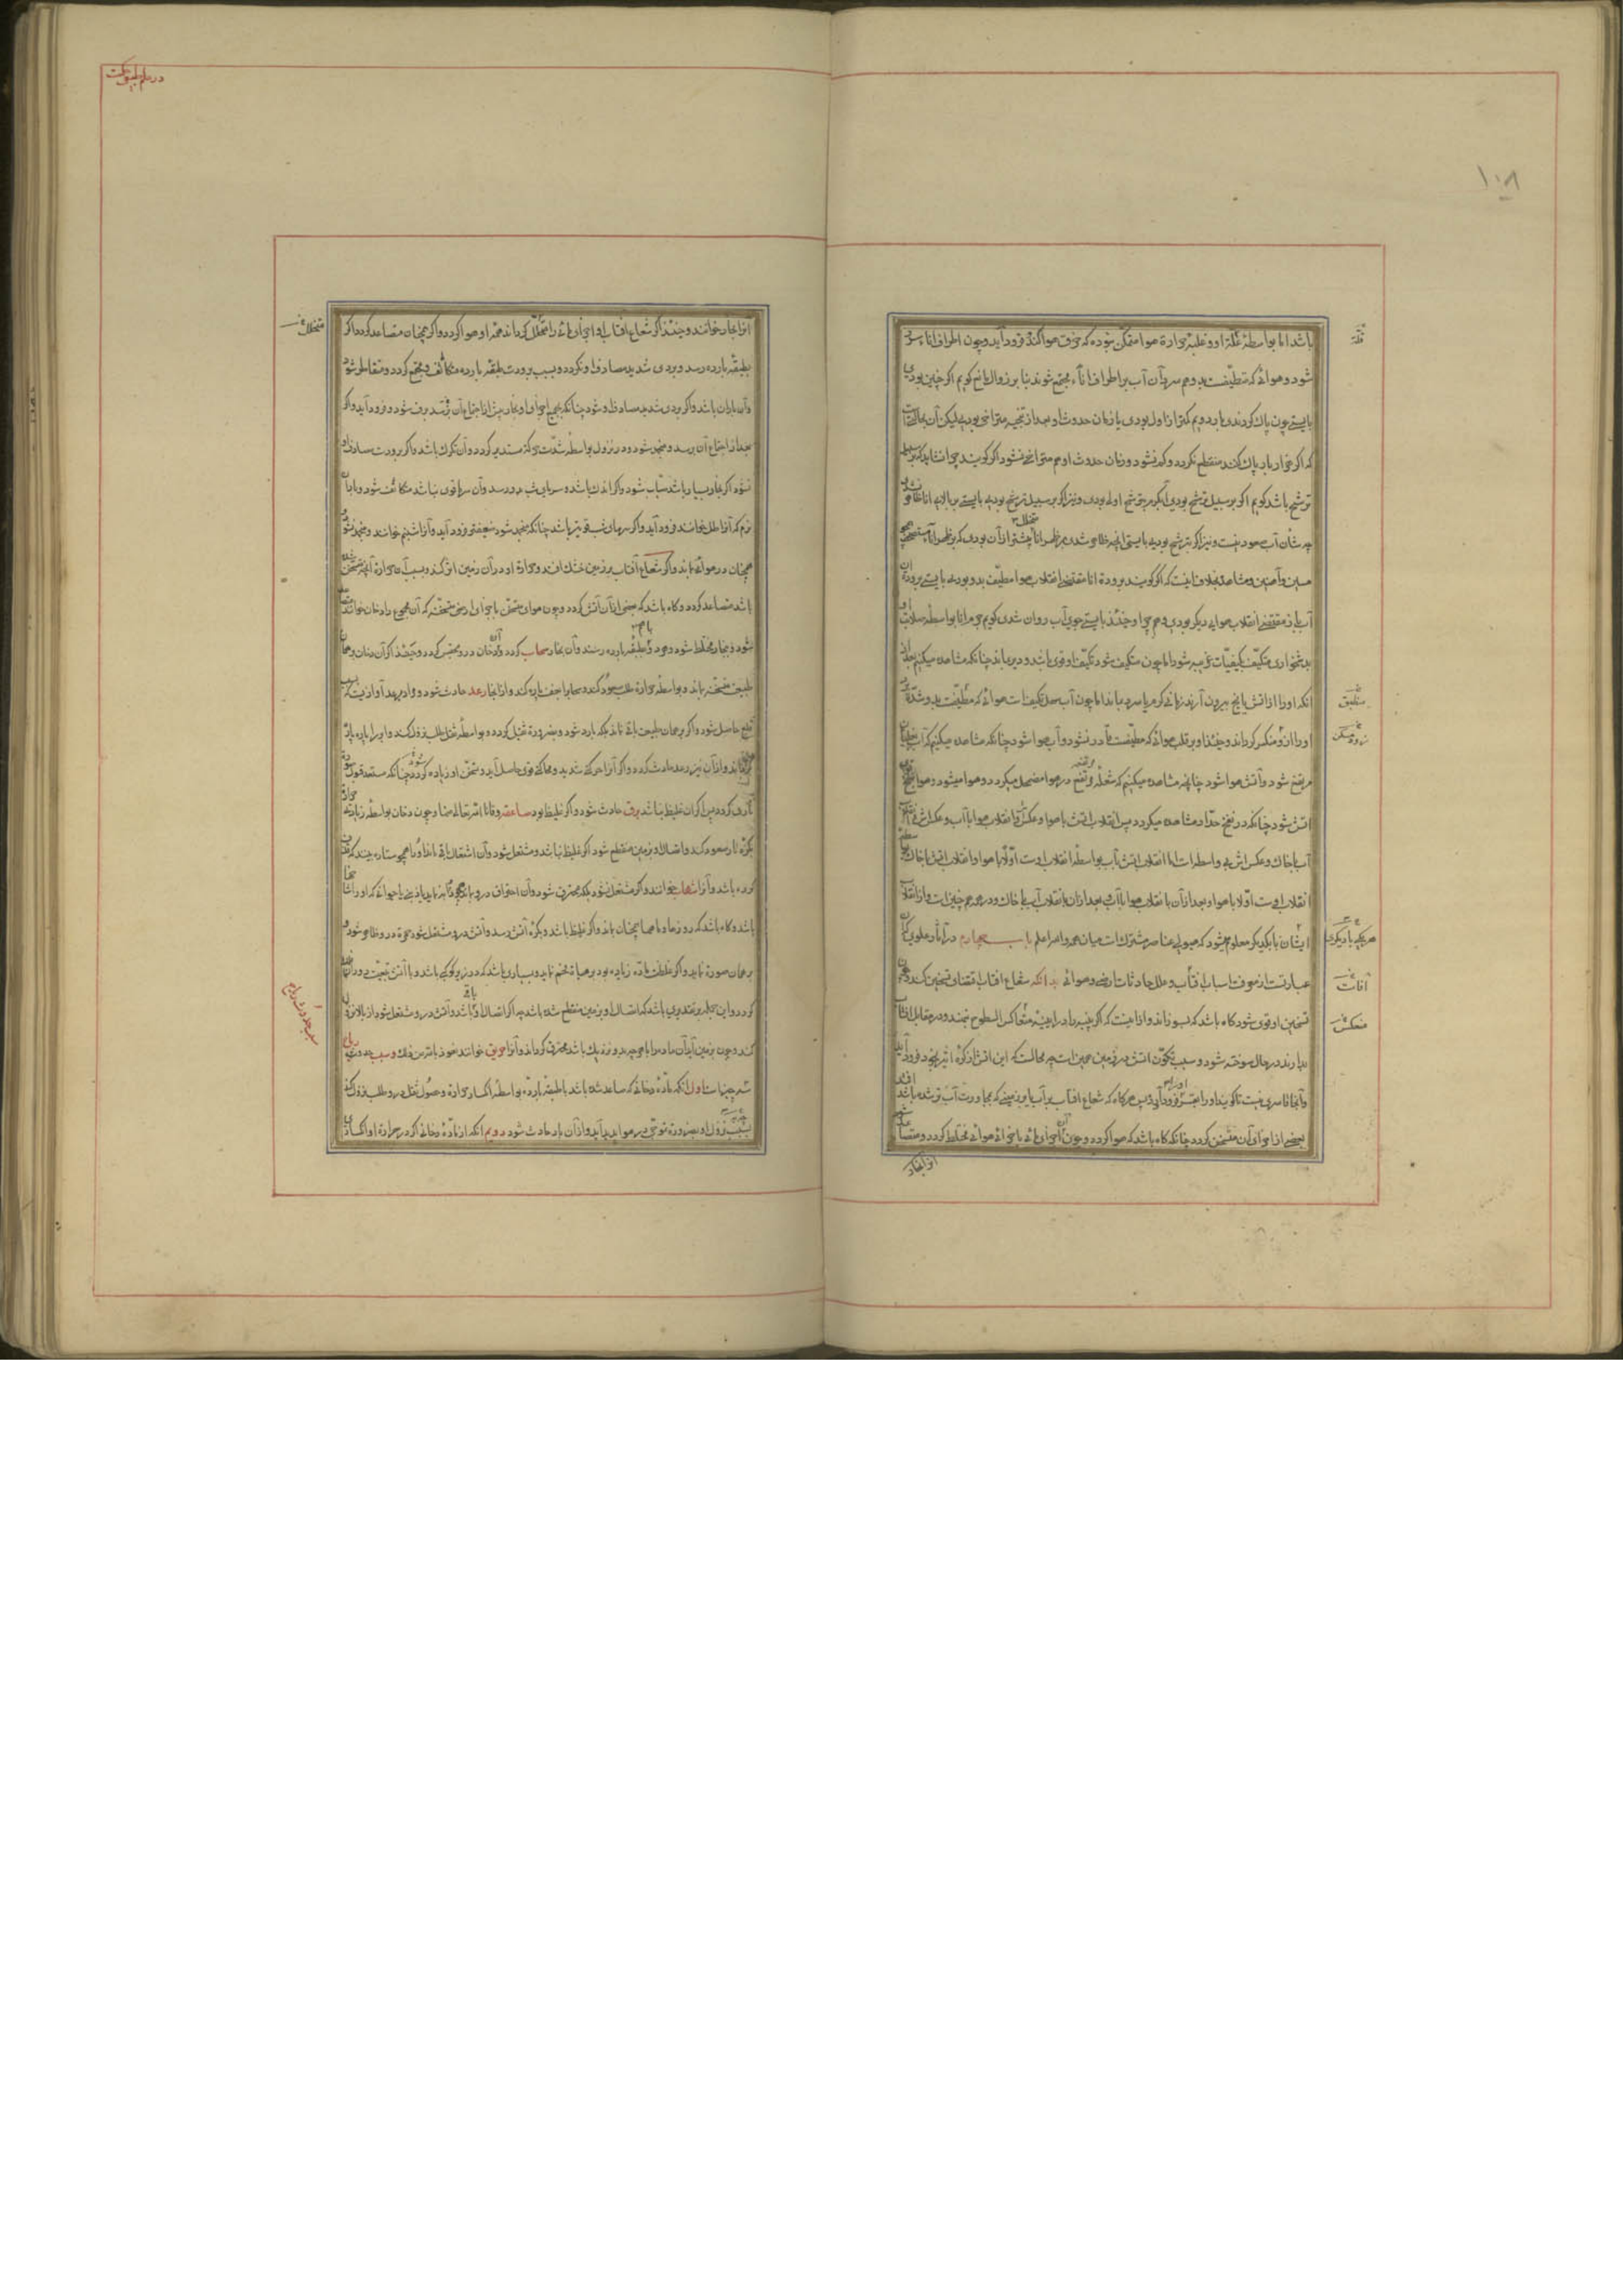 ۱۰۸
باشد اما بواسطهٔ قلّة او و غلبهٔ حرارة هوا متمکّن نبوده که خرق هوا کند و فرود آید و چون اطراف اناء سرد
شود و هوائی که مطیف است بدو هم سرد آن آب بر اطراف اناء مجتمع شوند بنابر زوال مانع گویم اگر چنین بودی
بایستی چون پاک کردندی بار دویم کمتر از اول بودی یا زمان حدوث او بعد از تنحیه متراخی بودی لیکن آن بحالتیست
که اگر هزار بار پاک کنند منقطع نگردد و کم نشود و زمان حدوث او هم متراخی نشود اگر گویند چرا نشاید که بر سبیل
ترشح باشد گویم اگر بر سبیل ترشح بودی آب گرم بترشح اولی بودی و نیز اگر بر سبیل ترشح بودی بایستی بر بالای اناء ظاهر نشدی
چه شأن آب صعود نیست و نیز اگر بترشح بودی بایستی آنچه ظاهر شدی بر ظهر اناء
مسین و آهنین و مشاهده بخلاف اینست که اگر گویند برودة اناء مقتضی انقلاب هوا مطیف بدو بودی بایستی برودة آن
آب نیز مقتضی انقلاب هوای دیگر بودی و هلم جرا و حینئذ بایستی جوی آب روان شدی گویم جرم اناء بواسطهٔ صلابت او
بدشخواری متکیّف بکیفیّات غریبه شود اما چون متکیف شود تکیّف او قوی باشد و دیر بماند چنانکه مشاهده میکنیم
انکه او را از آتش یا یخ بیرون آرند زمانی گرم یا سرد بماند اما چون آب سهل تکیف است هوائی که مطیفست بدو شدّة
او را از و منکسر گرداند و حینئذ او بر قلب هوائی که مطیفست قادر نشود و آب هوا شود چنانکه مشاهده میکنیم که آب بخار
مرتفع شود و آتش هوا شود چنانچه مشاهده میکنیم که شعلهٔ مرتفعه در هوا مضمحل میگردد و هوا میشود و هوا
آتش شود چنانکه در نفخ حدّاد مشاهده میگردد پس انقلاب آتش با هوا و عکس و انقلاب هوا با آب و عکسش
آب با خاک و عکسش بی واسطه است اما انقلاب آتش بآب بواسطهٔ انقلاب اوست اوّلا با هوا و انقلاب آتش با خاک بواسطه
انقلاب اوست اوّلا با هوا و بعد از آن بانقلاب هوا با آب و بعد از آن بانقلاب آب با خاک و در عکس هم چنین است و از انقلاب
ایشان با یکدیگر معلوم میشود که هیولی عناصر مشترک است میان همه و اللّه اعلم باب چهارم در آثار علوی که آن
عبارتست از معرفت اسباب و علل حادثات ارضی و هوائی بدانکه شعاع آفتاب اقتضای تسخین کند و چون
تسخین او قوی شود گاه باشد که بسوزاند و از اینست که اگر پنبه را در آینه متعاکس السطوح نهند و در مقابل آفتاب
بدارند در حال سوخته شود و سبب تکوّن آتش در زمین همین است چه محالست که این آتش از کرهٔ اثیر بخود فرود آید
و آنجا قاسری نیست تا گویند او را بقسر فرود آورد پس هرگاه که شعاع آفتاب بر آب یا بر زمینی که بمجاورت آب تر شده باشد افتد
بعضی از اجزای آن متسخن گردد چنانکه گاه باشد که هوا گردد و چون آن اجزاء مائی با اجزاء هوائی مختلط گردد و متصاعد شود
انرا بخار
قلّة
منطبق
هریکی با دیگری
آفات
منعکس
در علم طبیعی
انرا بخار خوانند و حینئذ اگر شعاع آفتاب او اجزاء مائی را متحلّل گرداند همه او هوا گردد و اگر همچنان متصاعد گردد و اگر
بطبقهٔ بارده رسد و بردی شدید مصادف او نگردد و بسبب برودت طبقهٔ بارده متکاثف و مجتمع گردد و متقاطر شود
و آن باران باشد و اگر بردی شدید مصادف او شود چنانکه جمیع اجزاء او بخار پیش از اجتماع آن بفسرد برف شود و فرود آید و اگر
بعد از اجتماع آن برسد و منجمد شود و در نزول بواسطهٔ شدّت حرکة مستدیر گردد و آن تگرگ باشد و اگر برودت مصادف او
نشود اگر بخار بسیار باشد سحاب شود و اگر اندک باشد و سرمای شب بدو رسد و آن سرما قوی نباشد متکاثف شود و باران
نرم که آنرا طل خوانند فرود آید و اگر سرمای شب قویتر باشد چنانکه منجمد شود ضعیفتر فرود آید و آنرا شبنم خوانند و منجمد نشود
همچنان در هوا بماند و اگر شعاع آفتاب بر زمین خشک افتد و حرارة او در آن زمین اثر کند و بسبب آن حرارة آنچه متسخن شده
باشد متصاعد گردد و گاه باشد که بعضی از آن آتش گردد و چون هوای متسخن با اجزای ارضی متسخنه که آن مجموع را دخان خوانند متصاعد
شود و بخار مختلط شود و هر دو بطبقهٔ بارده رسند و آن بخار سحاب گردد و آن دخان در و محتبس گردد و حینئذ اگر آن دخان بر همان
طبیعت متسخنه بماند و بواسطهٔ حرارة طلب صعود کند و سحاب را بعنف پاره کند و از انجا رعد حادث شود و مراد برعد آوازیست که بسبب
قلع حاصل شود و اگر بر همان طبیعت باقی نماند بلکه بارد شود و بضرورة ثقیل گردد و بواسطهٔ ثقل طلب نزول کند و ابر را پاره پاره
گرداند و از آن نیز رعد حادث گردد و اگر آنرا حرکة شدید و محاکة قوی حاصل آید و تسخّن او زیاده گردد چنانکه مستعد قبول
ناری گردد پس اگر آن غلیظ نباشد برق حادث شود و اگر غلیظ بود صاعقه وقانا اللّه تعالی منها و چون دخان بواسطهٔ زیادتی حرارة
بکرهٔ نار صعود کند و اتصال او بزمین منقطع شود اگر غلیظ نباشد و مشتعل شود و آن اشتعال باقی ماند او را همچو ستاره بینند که قذف
کرده باشد و آنرا شهاب خوانند و اگر مشتعل نشود بلکه محترق شود و آن احتراق در و بماند
باشد و گاه باشد که روزها و ماهها همچنان بماند و اگر غلیظ باشد و بکرهٔ آتش رسد و آتش درو مشتعل شود حمرة در و ظاهر شود و
بر همان صورة نماید و اگر غلظت مادّه زیاده بود بر هیأة فحم نماید و بسیاری باشد که در زیر کوکبی باشد و با آتش بتبعیت دوران
گردد و این جمله بر تقدیری باشد که اتصال او بزمین منقطع شده باشد چه اگر اتصال او باشد و آتش درو مشتعل شود از بالا نزول
کند و چون بزمین آید آن ماده را با هرچه بدو نزدیک باشد محترق گرداند و آنرا حریق خوانند نعوذ باللّه من ذلک و سبب حدوث ریاح
سه چیز است اول آنکه مادّهٔ دخانی که صاعد شده باشد با طبقهٔ بارده بواسطهٔ انکسار حرارة و حصول ثقل درو طلب نزول کند
بسبب نزول او بضرورة تموّجی در هوا پدید آید و از آن باد حادث شود دویم آنکه از مادّهٔ دخانی اگر در حرارة او انکسار
متخلل
سبب حدوث ریاح